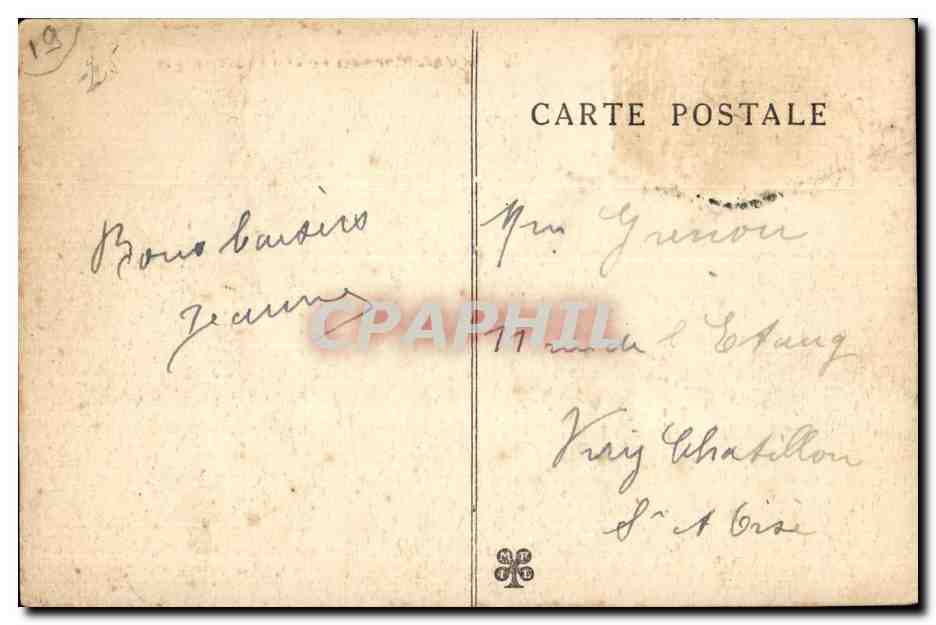 19
CARTE POSTALE
Bons baisers
Jeanne
CPAPHIL
Mme Grenon
11 rue de l'Etang
Viry Chatillon
Se et Oise
M R
T E